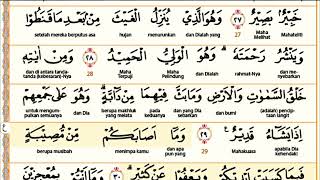 خَبِيْرٌۢ بَصِيْرٌ ٢٧ وَهُوَ الَّذِيْ يُنَزِّلُ الْغَيْثَ مِنْۢ بَعْدِ مَا قَنَطُوْا
Maha Melihat 27 dan Dialah yang menurunkan hujan setelah mereka berputus asa
وَيَنْشُرُ رَحْمَتَهٗ ۗ وَهُوَ الْوَلِيُّ الْحَمِيْدُ ٢٨ وَمِنْ اٰيٰتِهٖ
dan menyebarkan rahmat-Nya dan Dialah Maha Terpuji 28 dan di antara tanda-tanda (kebesaran)-Nya
خَلْقُ السَّمٰوٰتِ وَالْاَرْضِ وَمَا بَثَّ فِيْهِمَا مِنْ دَاۤبَّةٍ ۗ وَهُوَ عَلٰى جَمْعِهِمْ
penciptaan langit dan bumi dan apa yang Dia sebarkan pada keduanya berupa makhluk yang melata dan Dia untuk mengumpulkan semuanya
اِذَا يَشَاۤءُ قَدِيْرٌ ٢٩ وَمَآ اَصَابَكُمْ مِّنْ مُّصِيْبَةٍ
apabila Dia kehendaki Mahakuasa 29 dan apa pun yang menimpa kamu berupa musibah
فَبِمَا كَسَبَتْ اَيْدِيْكُمْ وَيَعْفُوْا عَنْ كَثِيْرٍ ۗ ٣٠ وَمَآ اَنْتُمْ بِمُعْجِزِيْنَ